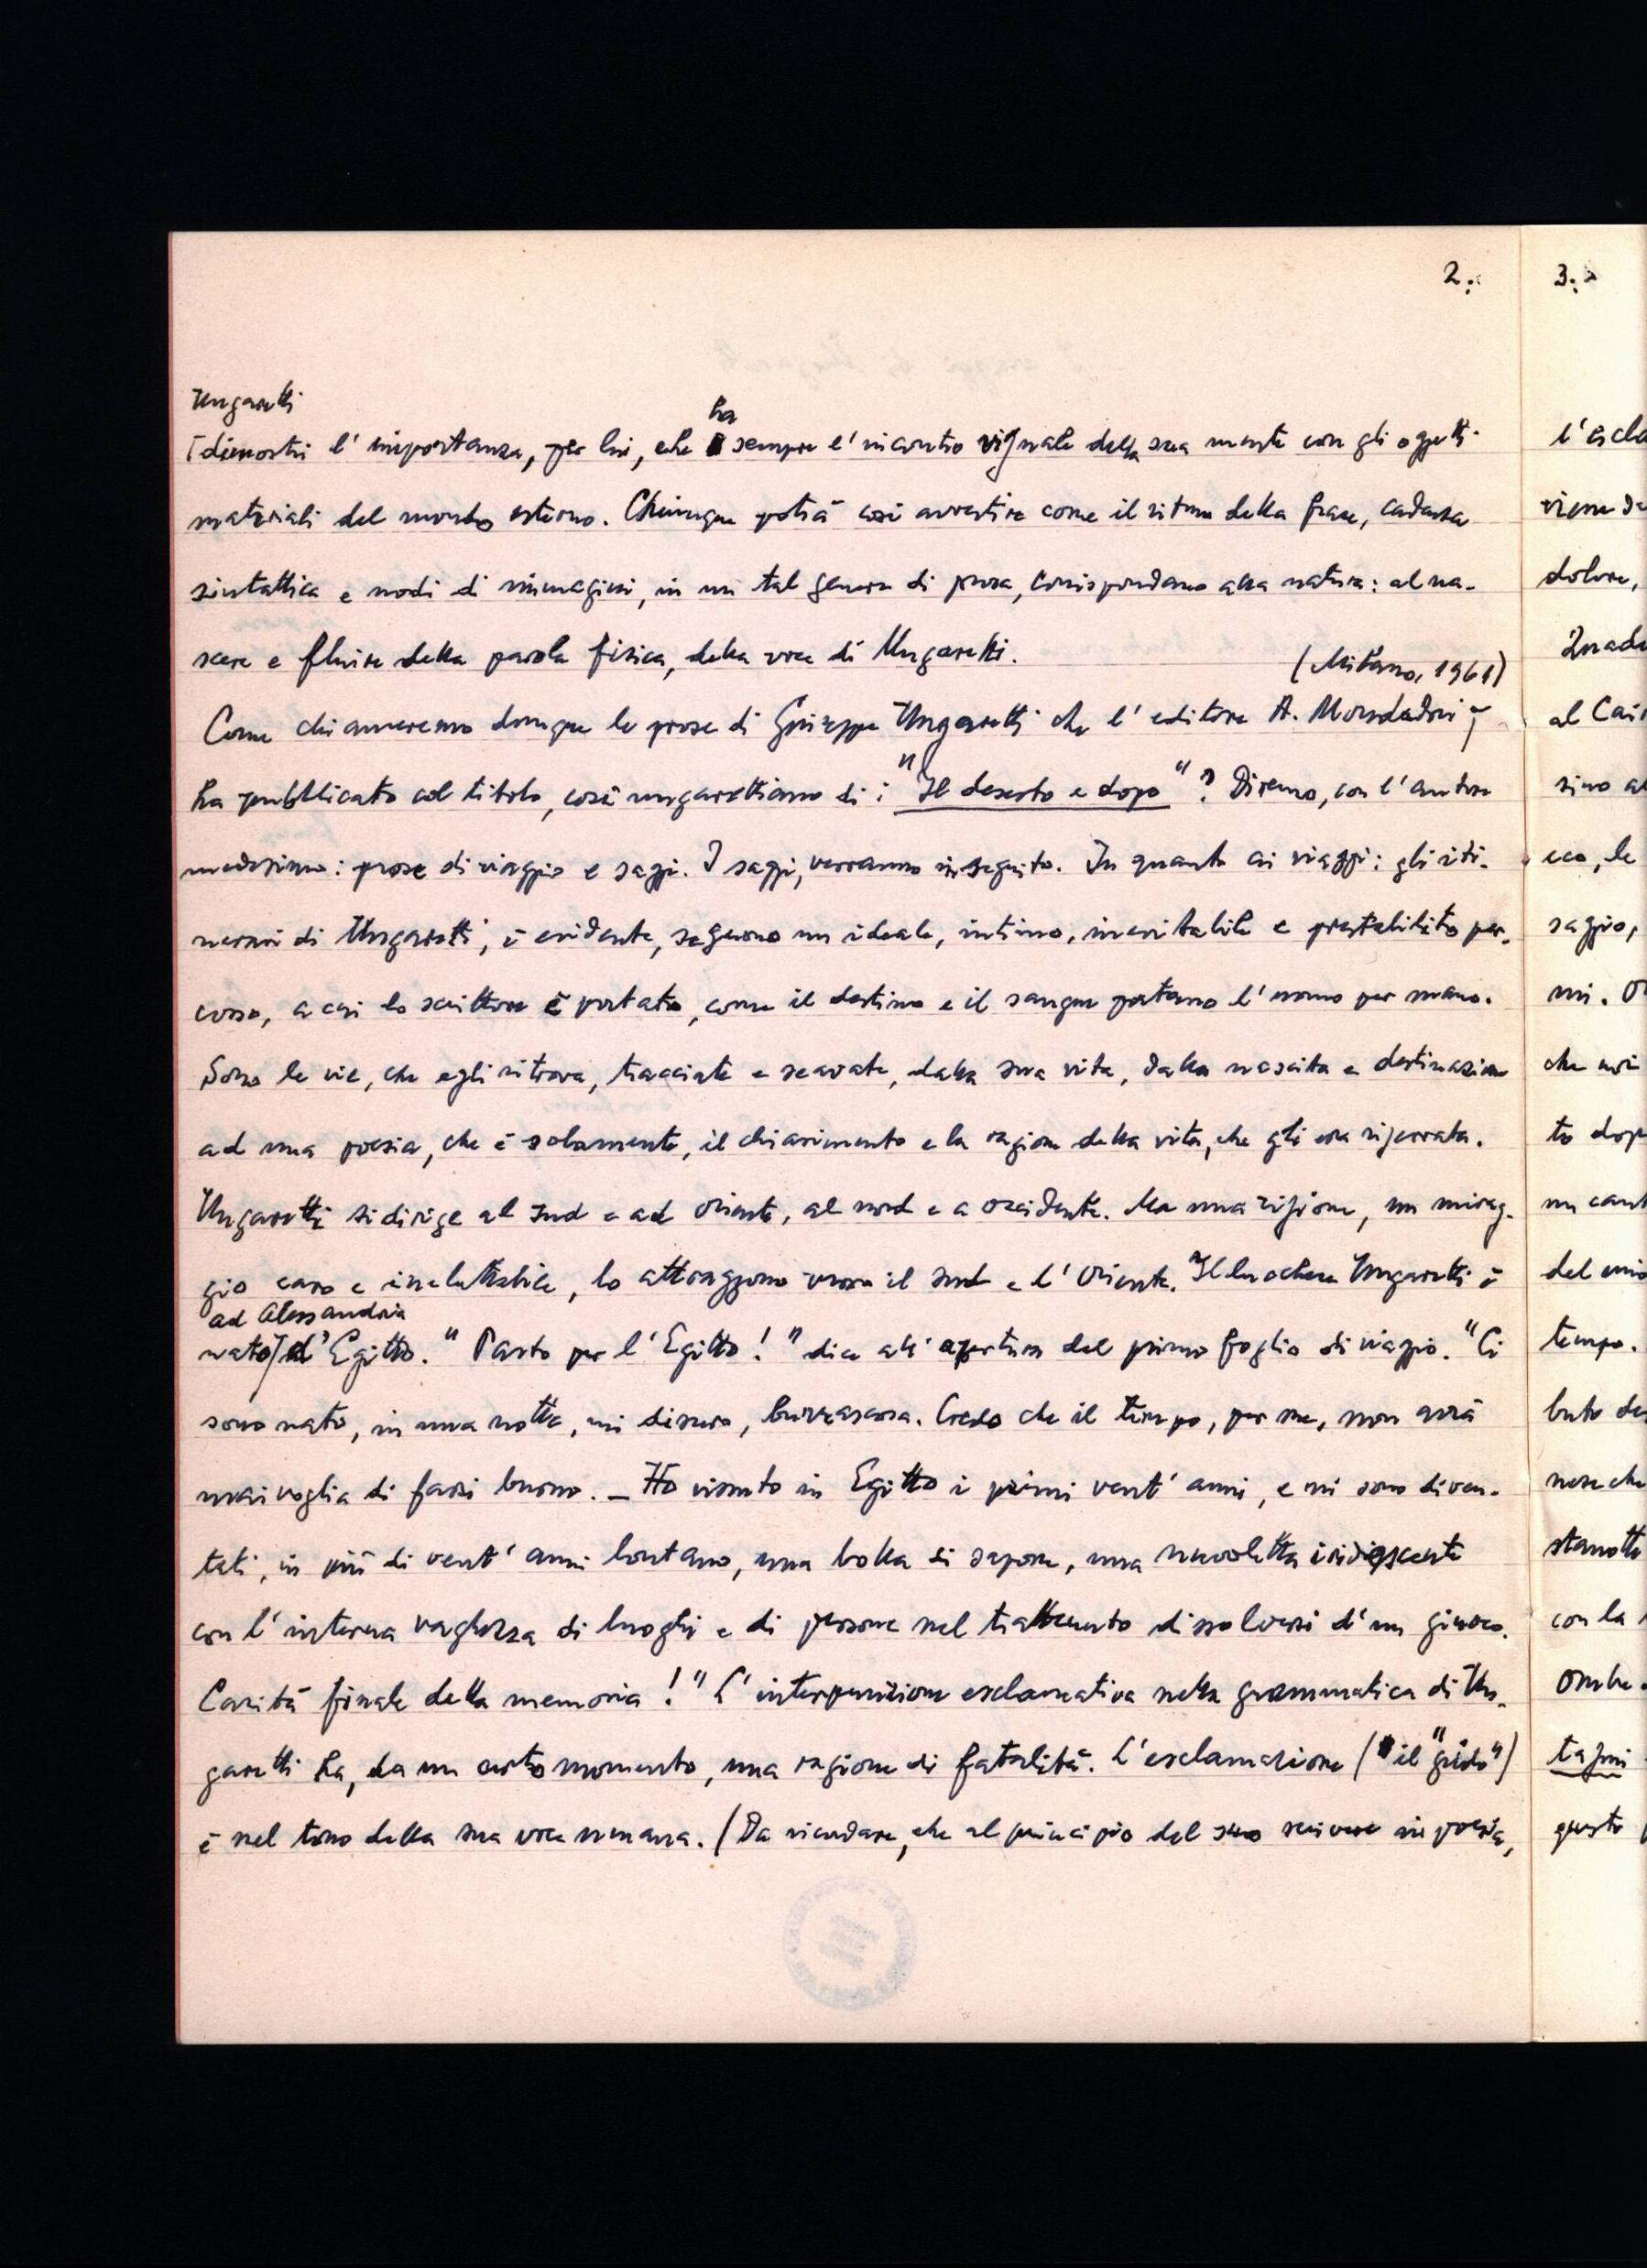 2.
Ungaretti
dimostri l'importanza, per lui, che ha sempre l'incontro visuale della sua mente con gli oggetti
materiali del mondo esterno. Chiunque potrà così avvertire come il ritmo della frase, cadenza
sintattica e nodi di immagini, in un tal genere di prosa, corrispondano alla natura: al na-
scere e fluire della parola fisica, della voce di Ungaretti.
(Milano, 1961)
Come chiameremo dunque le prose di Giuseppe Ungaretti che l'editore A. Mondadori
ha pubblicato col titolo, così ungarettiano di: "Il deserto e dopo"? Diremo, con l'autore
medesimo: prose di viaggio e saggi. I saggi, verranno in seguito. In quanto ai viaggi: gli iti-
nerari di Ungaretti, è evidente, seguono un ideale, intimo, inevitabile e prestabilito per-
corso, a cui lo scrittore è portato, come il destino e il sangue portano l'uomo per mano.
Sono le vie, che egli ritrova, tracciate e scavate, dalla sua vita, dalla nascita e destinazione
ad una poesia, che è solamente, il chiarimento e la ragione della vita, che gli era riserrata.
Ungaretti si dirige al sud e ad oriente, al nord e a occidente. Ma una visione, un mirag-
gio caro e ineluttabile, lo attraggono verso il sud e l'Oriente. Il lucchese Ungaretti è
ad Alessandria
nato d'Egitto. "Parto per l'Egitto!" dice all'apertura del primo foglio di viaggio. "Ci
sono nato, in una notte, mi dissero, burrascosa. Credo che il tempo, per me, non avrà
mai voglia di farsi buono. _ Ho vissuto in Egitto i primi vent'anni, e mi sono diven-
tati, in più di vent'anni lontano, una bolla di sapone, una nuvoletta iridescente
con l'interna vaghezza di luoghi e di persone nel trattenuto dissolversi d'un gioco.
Carità finale della memoria!" L'interpunzione esclamativa nella grammatica di Un-
garetti ha, da un certo momento, una ragione di fatalità. L'esclamazione (il "grido")
è nel tono della sua voce umana. (Da ricordare, che al principio del suo scrivere in poesia,
3.
viene de
dolore,
al Cair
sino al
eco, le
saggio,
mi. Ol
che noi
to dop
un cant
del mio
tempo.
buto de
nese che
stanotte
con la
Ombre.
questo p